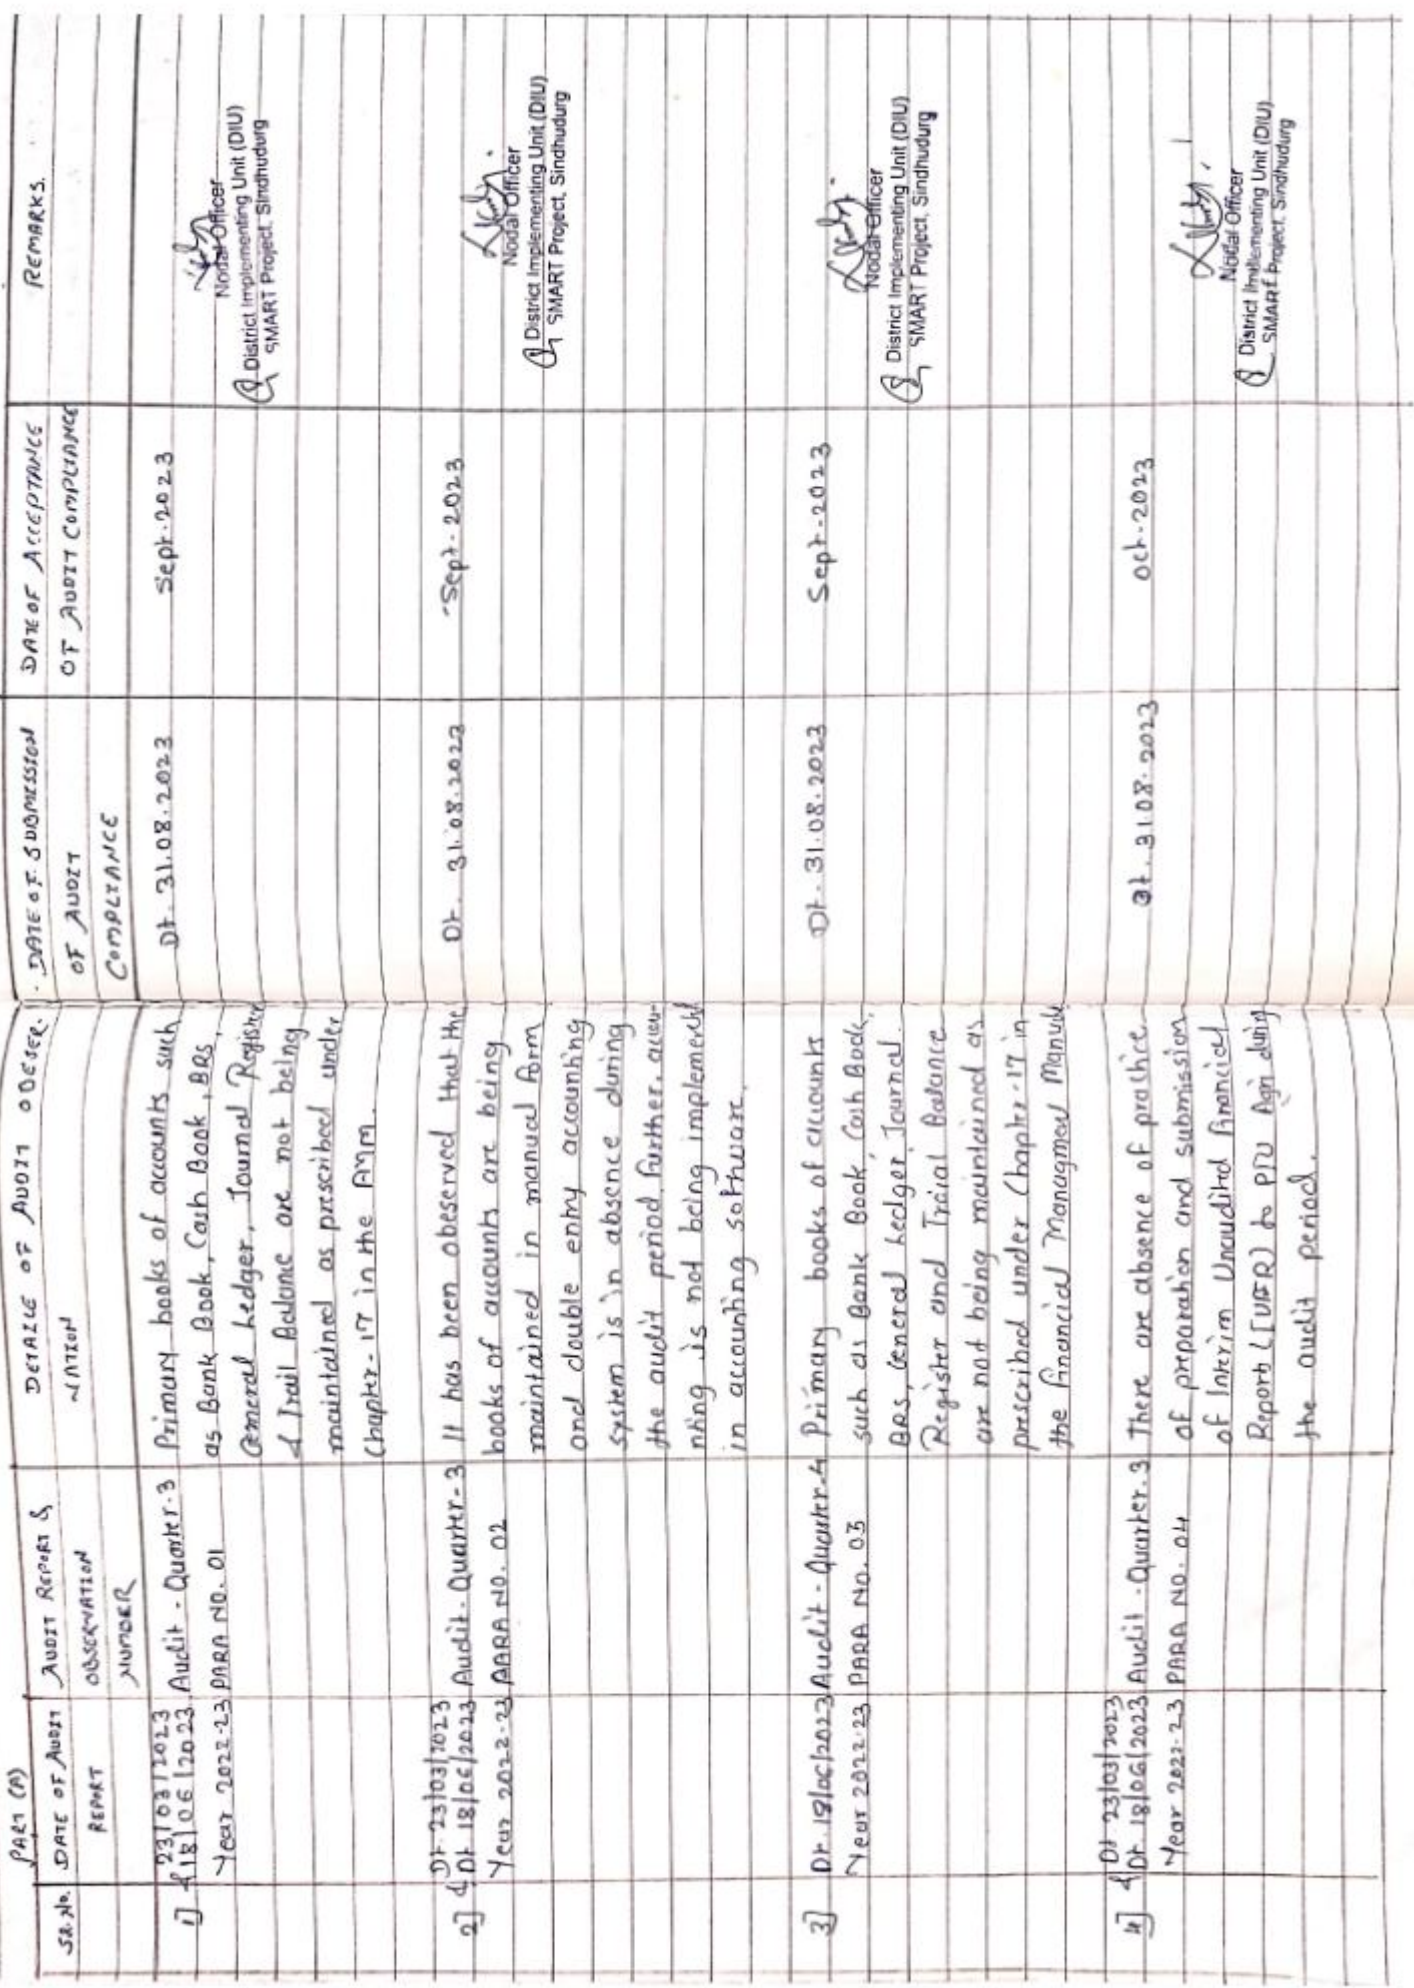 PART (A)
SR. No.
DATE OF AUDIT
REPORT
AUDIT REPORT &
OBSERVATION
NUMBER
DETAILE OF AUDIT OBESER.
-VATION
DATE OF SUBMISSION
OF AUDIT
COMPLIANCE
DATE OF ACCEPTANCE
OF AUDIT COMPLIANCE
REMARKS.
1]
23/03/2023
& 18/06/2023
Year 2022-23
Audit - Quarter-3
PARA NO. 01
Primary books of accounts such
as Bank Book, Cash Book, BRS,
General Ledger, Journal Register
& Trail Balance are not being
maintained as prescribed under
Chapter-17 in the FMM.
Dt. 31.08.2023
Sept-2023
Nodal Officer
District Implementing Unit (DIU)
SMART Project, Sindhudurg
2]
Dt. 23/03/2023
& Dt 18/06/2023
Year 2022-23
Audit-Quarter-3
PARA NO. 02
It has been obeserved that the
books of accounts are being
maintained in manual form
and double entry accounting
system is in absence during
the audit period. Further, accou-
nting is not being implemented
in accounting software.
Dt. 31.08.2023
Sept-2023
Nodal Officer
District Implementing Unit (DIU)
SMART Project, Sindhudurg
3]
Dt. 18/06/2023
Year 2022-23
Audit - Quarter-4
PARA No. 03
Primary books of accounts
such as Bank Book, Cash Book,
BRS, General Ledger, Journal
Register and Traial Balance
are not being maintained as
prescribed under Chapter-17 in
the Financial Managmed Manual
Dt. 31.08.2023
Sept-2023
Nodal Officer
District Implementing Unit (DIU)
SMART Project, Sindhudurg
4]
Dt 23/03/2023
& Dt. 18/06/2023
Year 2022-23
Audit - Quarter-3
PARA NO. 04
There are absence of practice
of preparation and submission
of Interim Unaudited financial
Report (IUFR) to PIU Agri during
the audit period.
Dt. 31.08.2023
Oct-2023
Nodal Officer
District Implementing Unit (DIU)
SMART Project, Sindhudurg